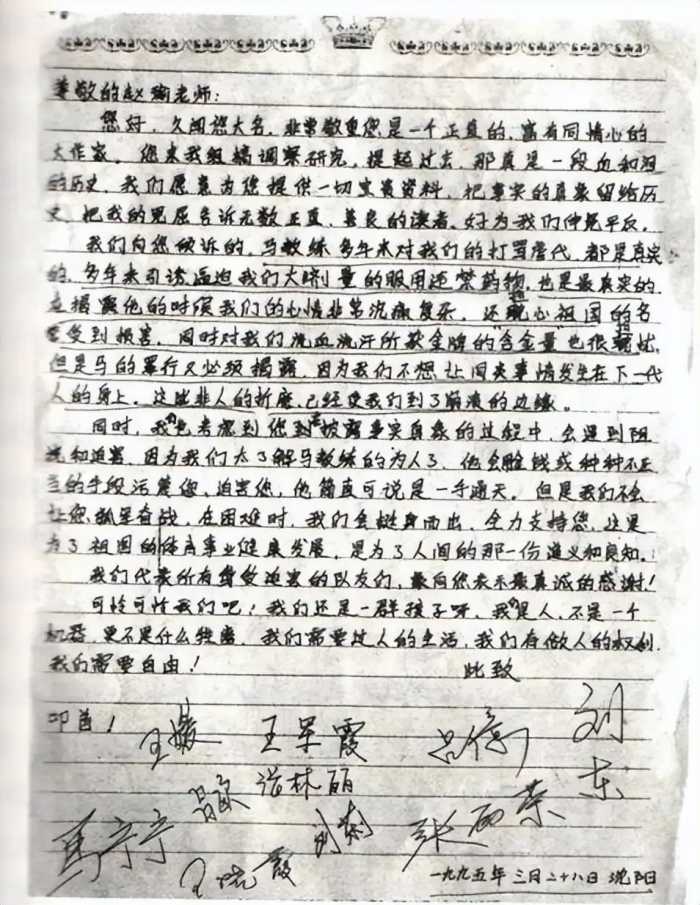 尊敬的赵瑜老师:
您好,久闻您大名,非常敬重您是一个正直的,富有同情心的
大作家。您来我组搞调察研究,提起过去,那真是一段血和泪
的历史,我们愿意为您提供一切宝贵资料,把事实的真象留给历
史,把我的冤屈告诉无数正直、善良的读者,好为我们伸冤平反。
我们向您倾诉的,马教练多年来对我们的打骂虐代,都是真实
的,多年来引诱逼迫我们大剂量的服用违禁药物,也是最真实的,
揭露他的时候我们的心情非常沉痛复杂,还担心祖国的名
誉受到损害,同时对我们流血流汗所获金牌的"含金量"也很担忧,
但是马的罪行又必须揭露,因为我们不想让同类事情发生在下一代
人的身上,这些非人的折磨,已经使我们到了崩溃的边缘。
同时,我们也考虑到您到披露事实真象的过程中,会遇到阻
挠和迫害,因为我们太了解马教练的为人了,他会脸钱或种种不正
当的手段活 您,迫害您,他简直可说是一手通天。但是我们不会
让您孤军奋战,在困难时,我们会挺身而出,全力支持您,这是
为了祖国的体育事业健康发展,是为了人间的那一份道义和良知。
我们代表所有曾受迫害的队友们,最向您表示最真诚的感谢!
可怜可怜我们吧!我们还是一群孩子呀,我们是人,不是一个
机器,更不是什么 ,我们需要过人的生活,我们有做人的权利,
我们需要自由!
此致
叩首!
王媛 王军霞 吕億 刘东
吕欧 张林丽
马宁宁 刘莉 张丽荣
王晓霞
一九九五年三月二十八日沈阳